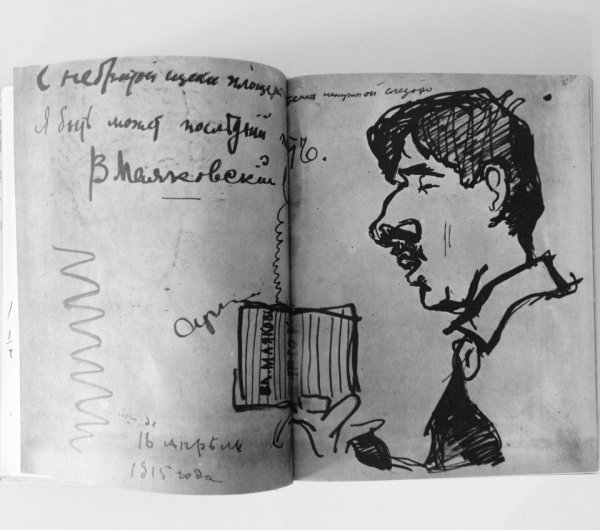 С небритой щеки площадей стекая ненужной слезою
Я быть может последній поэтъ.
В Маяковскій
ВЛ. МАЯКОВ
16 апрѣля
1915 года